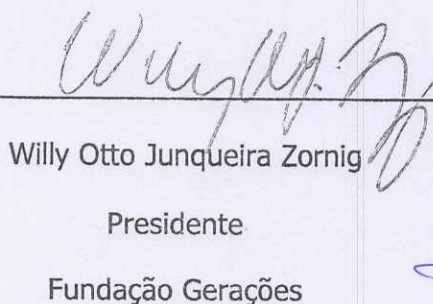 Willy Otto Junqueira Zornig
Presidente
Fundação Gerações